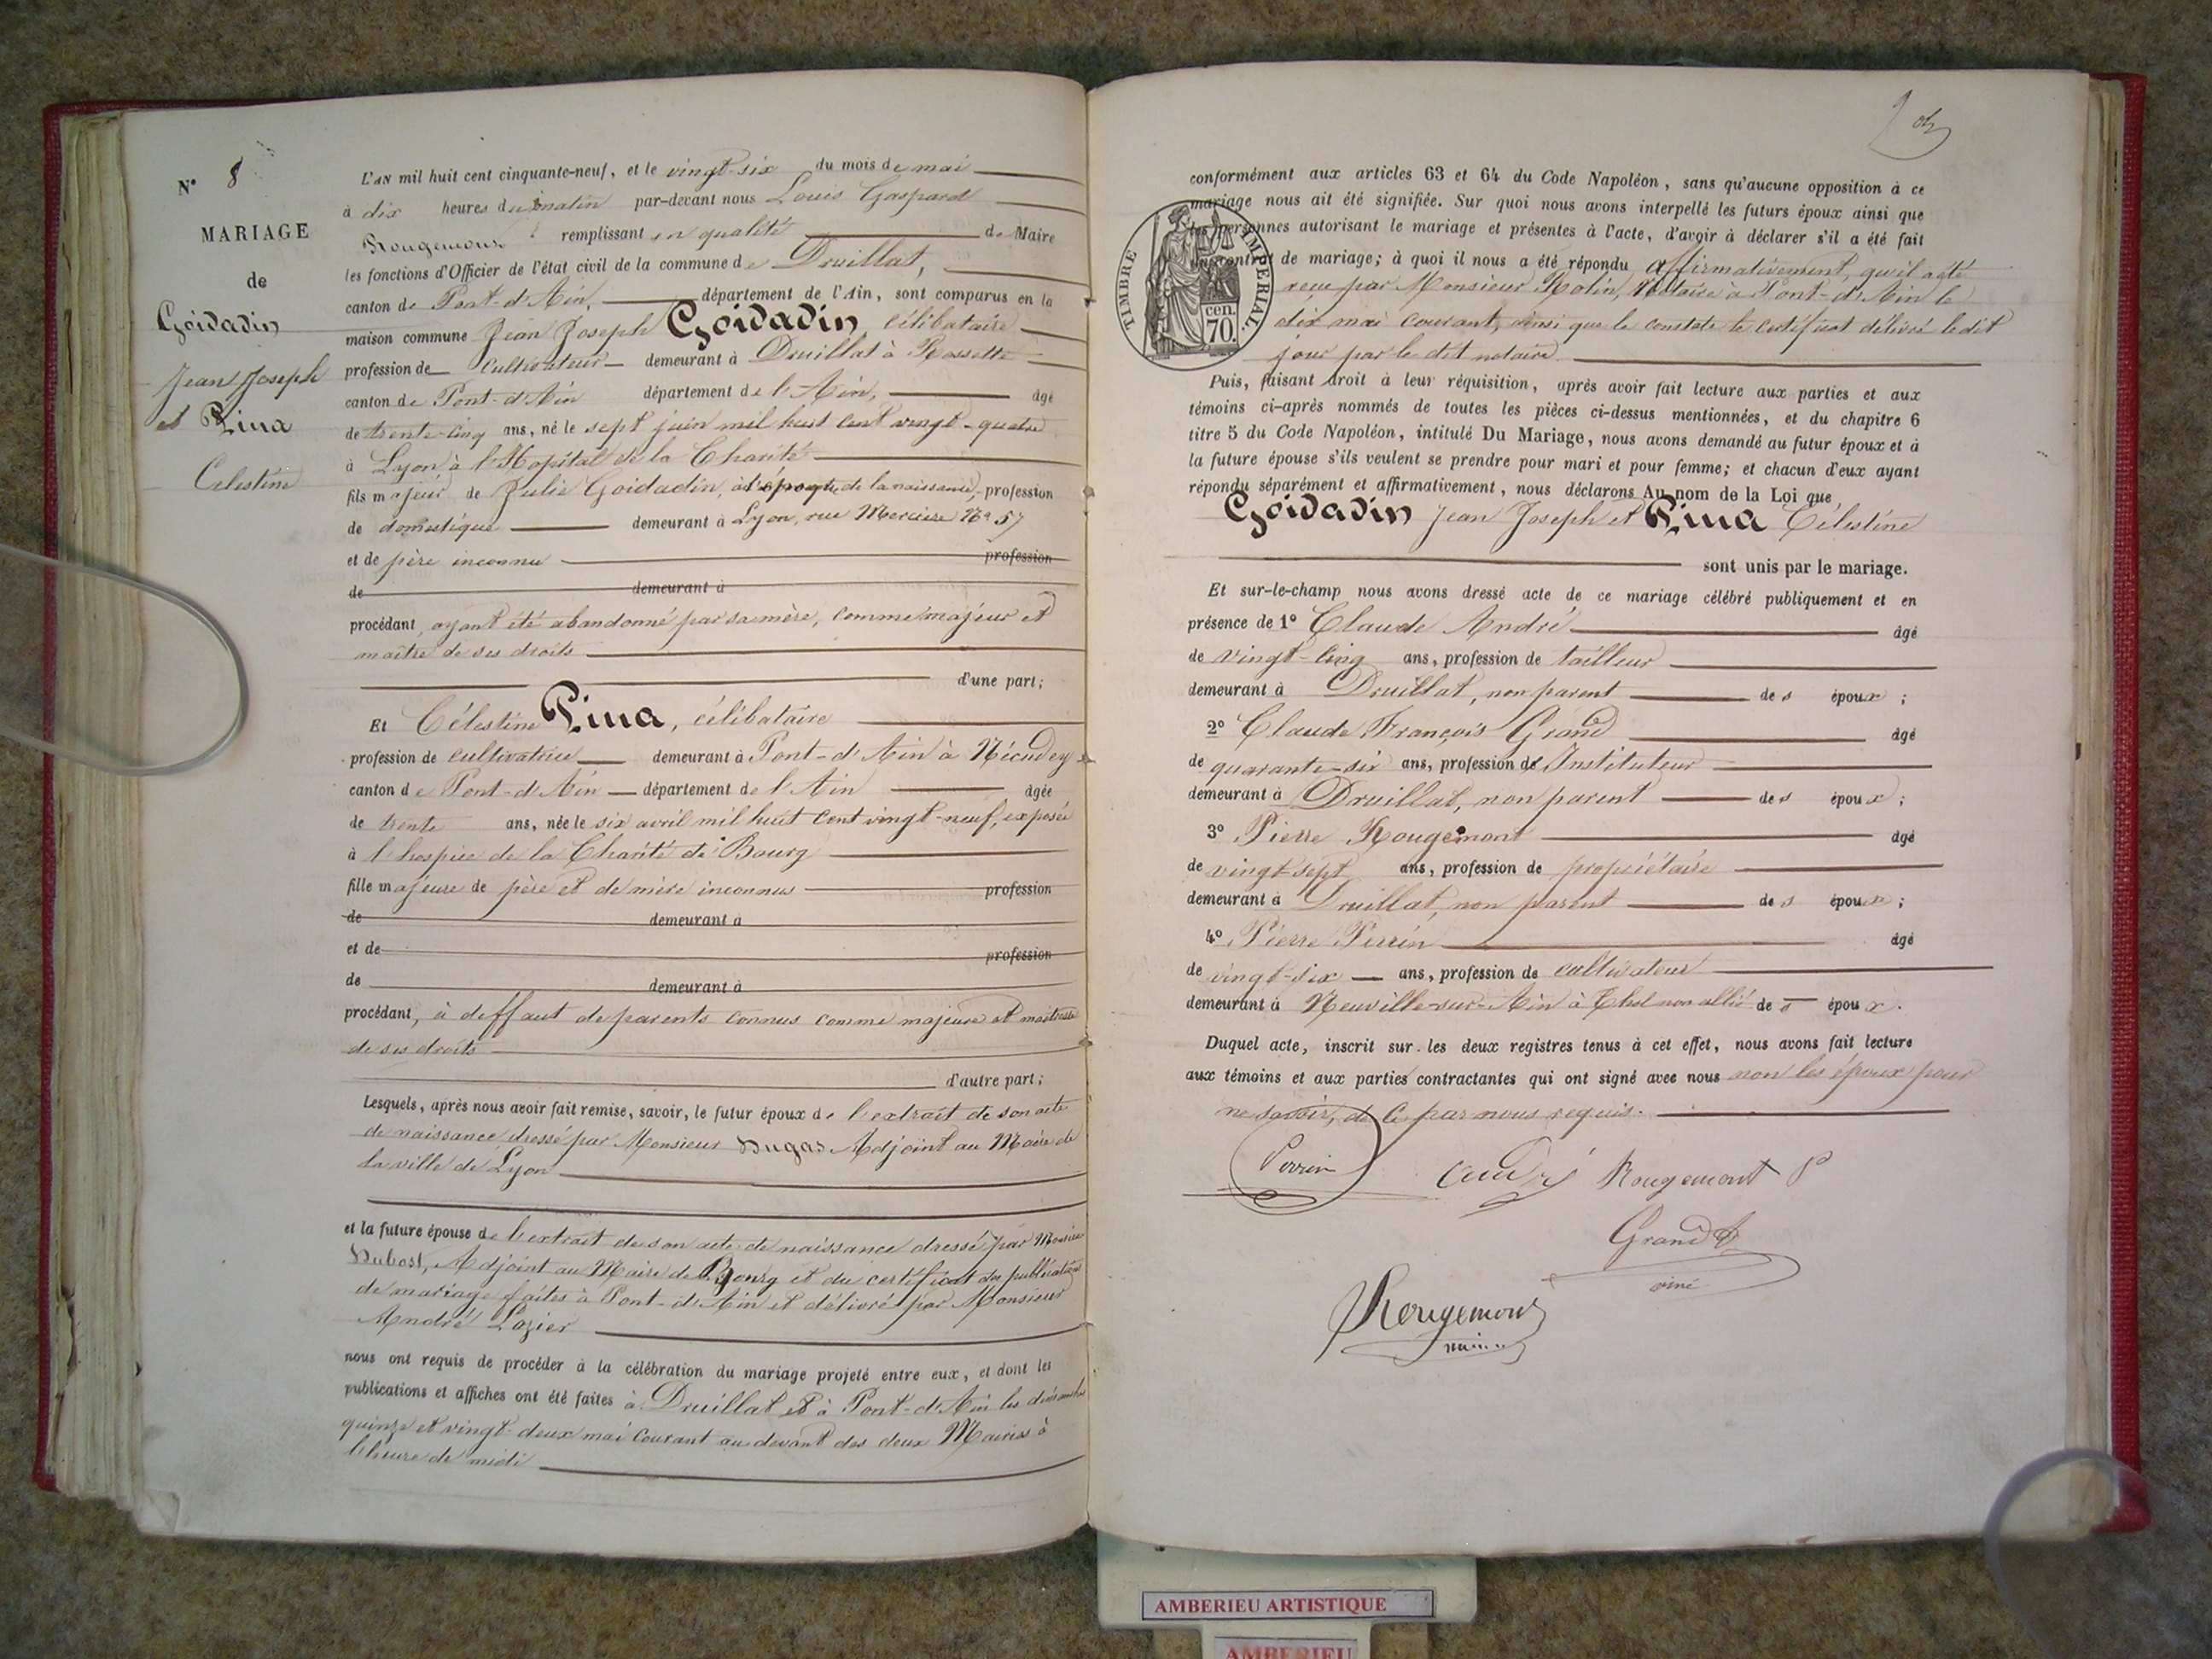 N° 8
MARIAGE
de
Goidadin
Jean Joseph
et Pina
Celestine
L'AN mil huit cent cinquante-neuf, et le vingt-six du mois de mai
à dix heures du matin par-devant nous Louis Gaspard
Rougemont remplissant en qualité de Maire
les fonctions d'Officier de l'état civil de la commune de Druillat,
canton de Pont-d'Ain, département de l'Ain, sont comparus en la
maison commune Jean Joseph Goidadin, célibataire
profession de cultivateur demeurant à Druillat à Rossette
canton de Pont-d'Ain département de l'Ain, âgé
de trente-cinq ans, né le sept juin mil huit cent vingt-quatre
à Lyon à l'Hopital de la Charité
fils majeur de Julie Goidadin, à l'époque de la naissance, profession
de domestique demeurant à Lyon, rue Merciere N° 57
et de père inconnu profession
de demeurant à
procédant, ayant été abandonné par sa mère, comme majeur et
maître de ses droits
d'une part;
Et Célestine Pina, célibataire
profession de cultivatrice demeurant à Pont-d'Ain à
canton de Pont-d'Ain département de l'Ain âgée
de trente ans, née le six avril mil huit cent vingt-neuf, exposée
à l'hospice de la Charité de Bourg
fille majeure de père et de mère inconnus profession
de demeurant à
et de profession
de demeurant à
procédant, à deffaut de parents connus comme majeure et maitresse
de ses droits
d'autre part;
Lesquels, après nous avoir fait remise, savoir, le futur époux de l'extrait de son acte
de naissance dressé par Monsieur Dugas Adjoint au Maire de
la ville de Lyon
et la future épouse de l'extrait de son acte de naissance dressé par Monsieur
Dubost, Adjoint au Maire de Bourg et du certificat des publications
de mariage faites à Pont-d'Ain et délivré par Monsieur
André Lozier
nous ont requis de procéder à la célébration du mariage projeté entre eux, et dont les
publications et affiches ont été faites à Druillat et à Pont-d'Ain les dimanches
quinze et vingt-deux mai courant au devant des deux Mairies à
l'heure de midi
conformément aux articles 63 et 64 du Code Napoléon, sans qu'aucune opposition à ce
mariage nous ait été signifiée. Sur quoi nous avons interpellé les futurs époux ainsi que
les personnes autorisant le mariage et présentes à l'acte, d'avoir à déclarer s'il a été fait
un contrat de mariage; à quoi il nous a été répondu affirmativement, qu'il a été
reçu par Monsieur Rolin, Notaire à Pont-d'Ain le
dix mai courant, ainsi que le constate le certificat délivré ledit
jour par le dit notaire.
TIMBRE IMPERIAL.
70 cen.
Puis, faisant droit à leur réquisition, après avoir fait lecture aux parties et aux
témoins ci-après nommés de toutes les pièces ci-dessus mentionnées, et du chapitre 6
titre 5 du Code Napoléon, intitulé Du Mariage, nous avons demandé au futur époux et à
la future épouse s'ils veulent se prendre pour mari et pour femme; et chacun d'eux ayant
répondu séparément et affirmativement, nous déclarons Au nom de la Loi que
Goidadin Jean Joseph et Pina Célestine
sont unis par le mariage.
Et sur-le-champ nous avons dressé acte de ce mariage célébré publiquement et en
présence de 1° Claude André âgé
de vingt-cinq ans, profession de tailleur
demeurant à Druillat, non parent des époux;
2° Claude François Grand âgé
de quarante-six ans, profession de Instituteur
demeurant à Druillat, non parent des époux;
3° Pierre Rougemont âgé
de vingt sept ans, profession de propriétaire
demeurant à Druillat, non parent des époux;
4° Pierre Perrin âgé
de vingt-six ans, profession de cultivateur
demeurant à Neuville-sur-Ain à Thol non allié des époux.
Duquel acte, inscrit sur les deux registres tenus à cet effet, nous avons fait lecture
aux témoins et aux parties contractantes qui ont signé avec nous non les époux pour
ne savoir, de ce par nous requis.
Perrin André Rougemont P
Grand
Rougemont
maire
AMBERIEU ARTISTIQUE
AMBERIEU